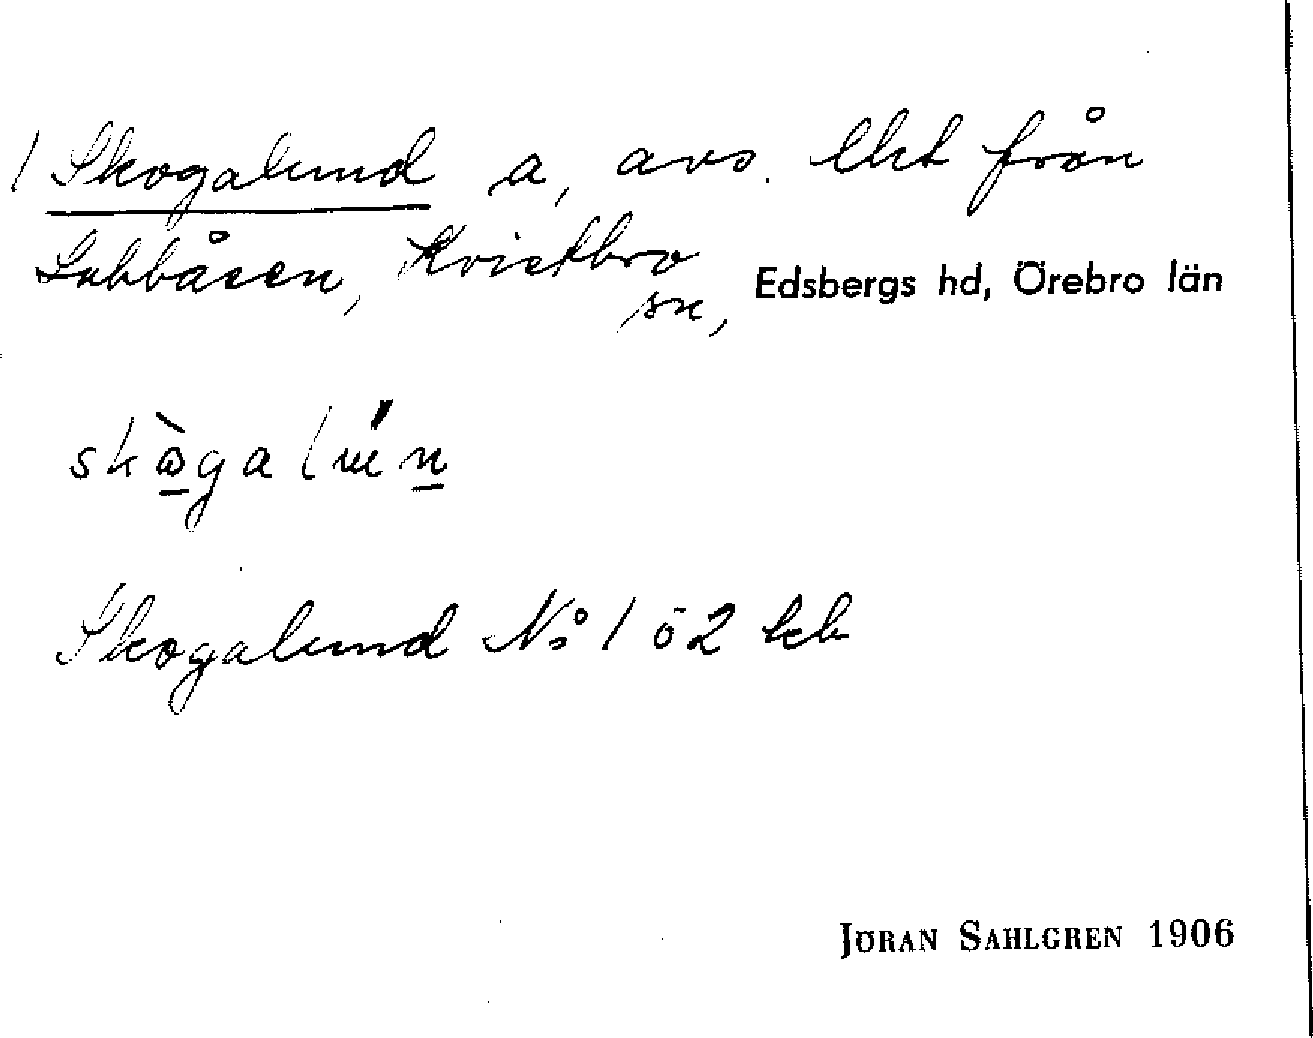 / Skogalund a, avs. lht från
Lubbåsen, Kvistbro
sn, Edsbergs hd, Örebro län
skògalun
Skogalund No 1 o 2 kb
JÖRAN SAHLGREN 1906